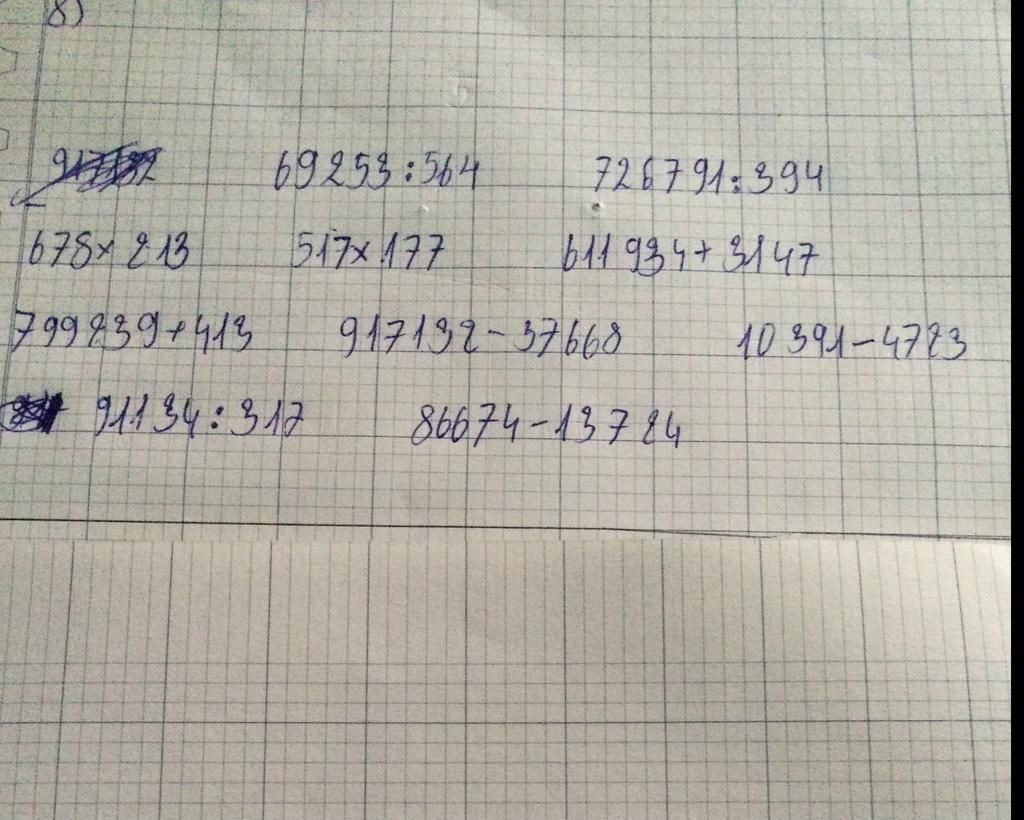 8)
69253:564 726791:394
678x213 517x177 611934+3147
799239+413 917132-37668 10391-4723
91134:317 86674-13724